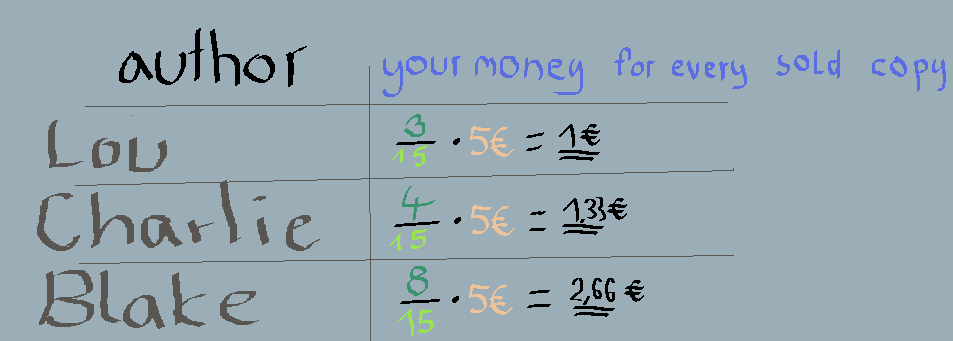 author your money for every sold copy
Lou 3/15 · 5€ = 1€
Charlie 4/15 · 5€ = 1,33€
Blake 8/15 · 5€ = 2,66€